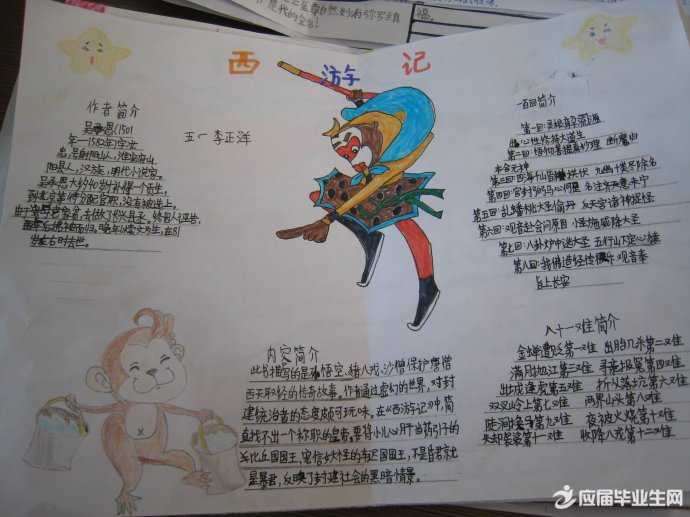 西游记
作者简介
吴承恩(1501
年—1582年)字汝
忠,号射阳山人,淮安府山
阳县人,汉族,明代小说家。
吴承恩大约40岁时才补得一个岁贡生,
五一 李正洋
内容简介
此书描写的是孙悟空、猪八戒、沙僧保护唐僧
西天取经的传奇故事。作者通过虚幻的世界,对封
建统治者的态度颇可玩味。在《西游记》中,简
直找不出一个称职的皇帝。要将小儿心肝当药引子的
比丘国国王,宠信妖道的车迟国国王,不是昏君就
是暴君,反映了封建社会的黑暗情景。
一百回简介
第一回:灵根育孕源流出
心性修持大道生
第二回:悟彻菩提真妙理 断魔归
本合元神
第三回:四海千山皆拱伏 九幽十类尽除名
第四回:官封弼马心何足 名注齐天意未宁
第五回:乱蟠桃大圣偷丹 反天宫诸神捉怪
第六回:观音赴会问原因 小圣施威降大圣
第七回:八卦炉中逃大圣 五行山下定心猿
第八回:我佛造经传极乐 观音奉
旨上长安
八十一难简介
金蝉遭贬第一难 出胎几杀第二难
满月抛江第三难 寻亲报冤第四难
出城逢虎第五难 折从落坑第六难
双叉岭上第七难 两界山头第八难
陡涧换马第九难 夜被火烧第十难
失却袈裟第十一难 收降八戒第十二难
应届毕业生网